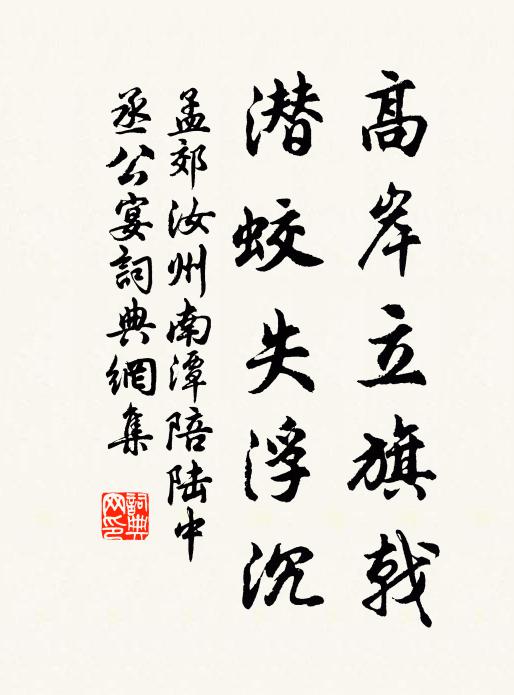 高岸立旗戟
潜蛟失浮沉
孟郊汝州南潭陪陆中
丞公宴詞典網集
詞典
网印